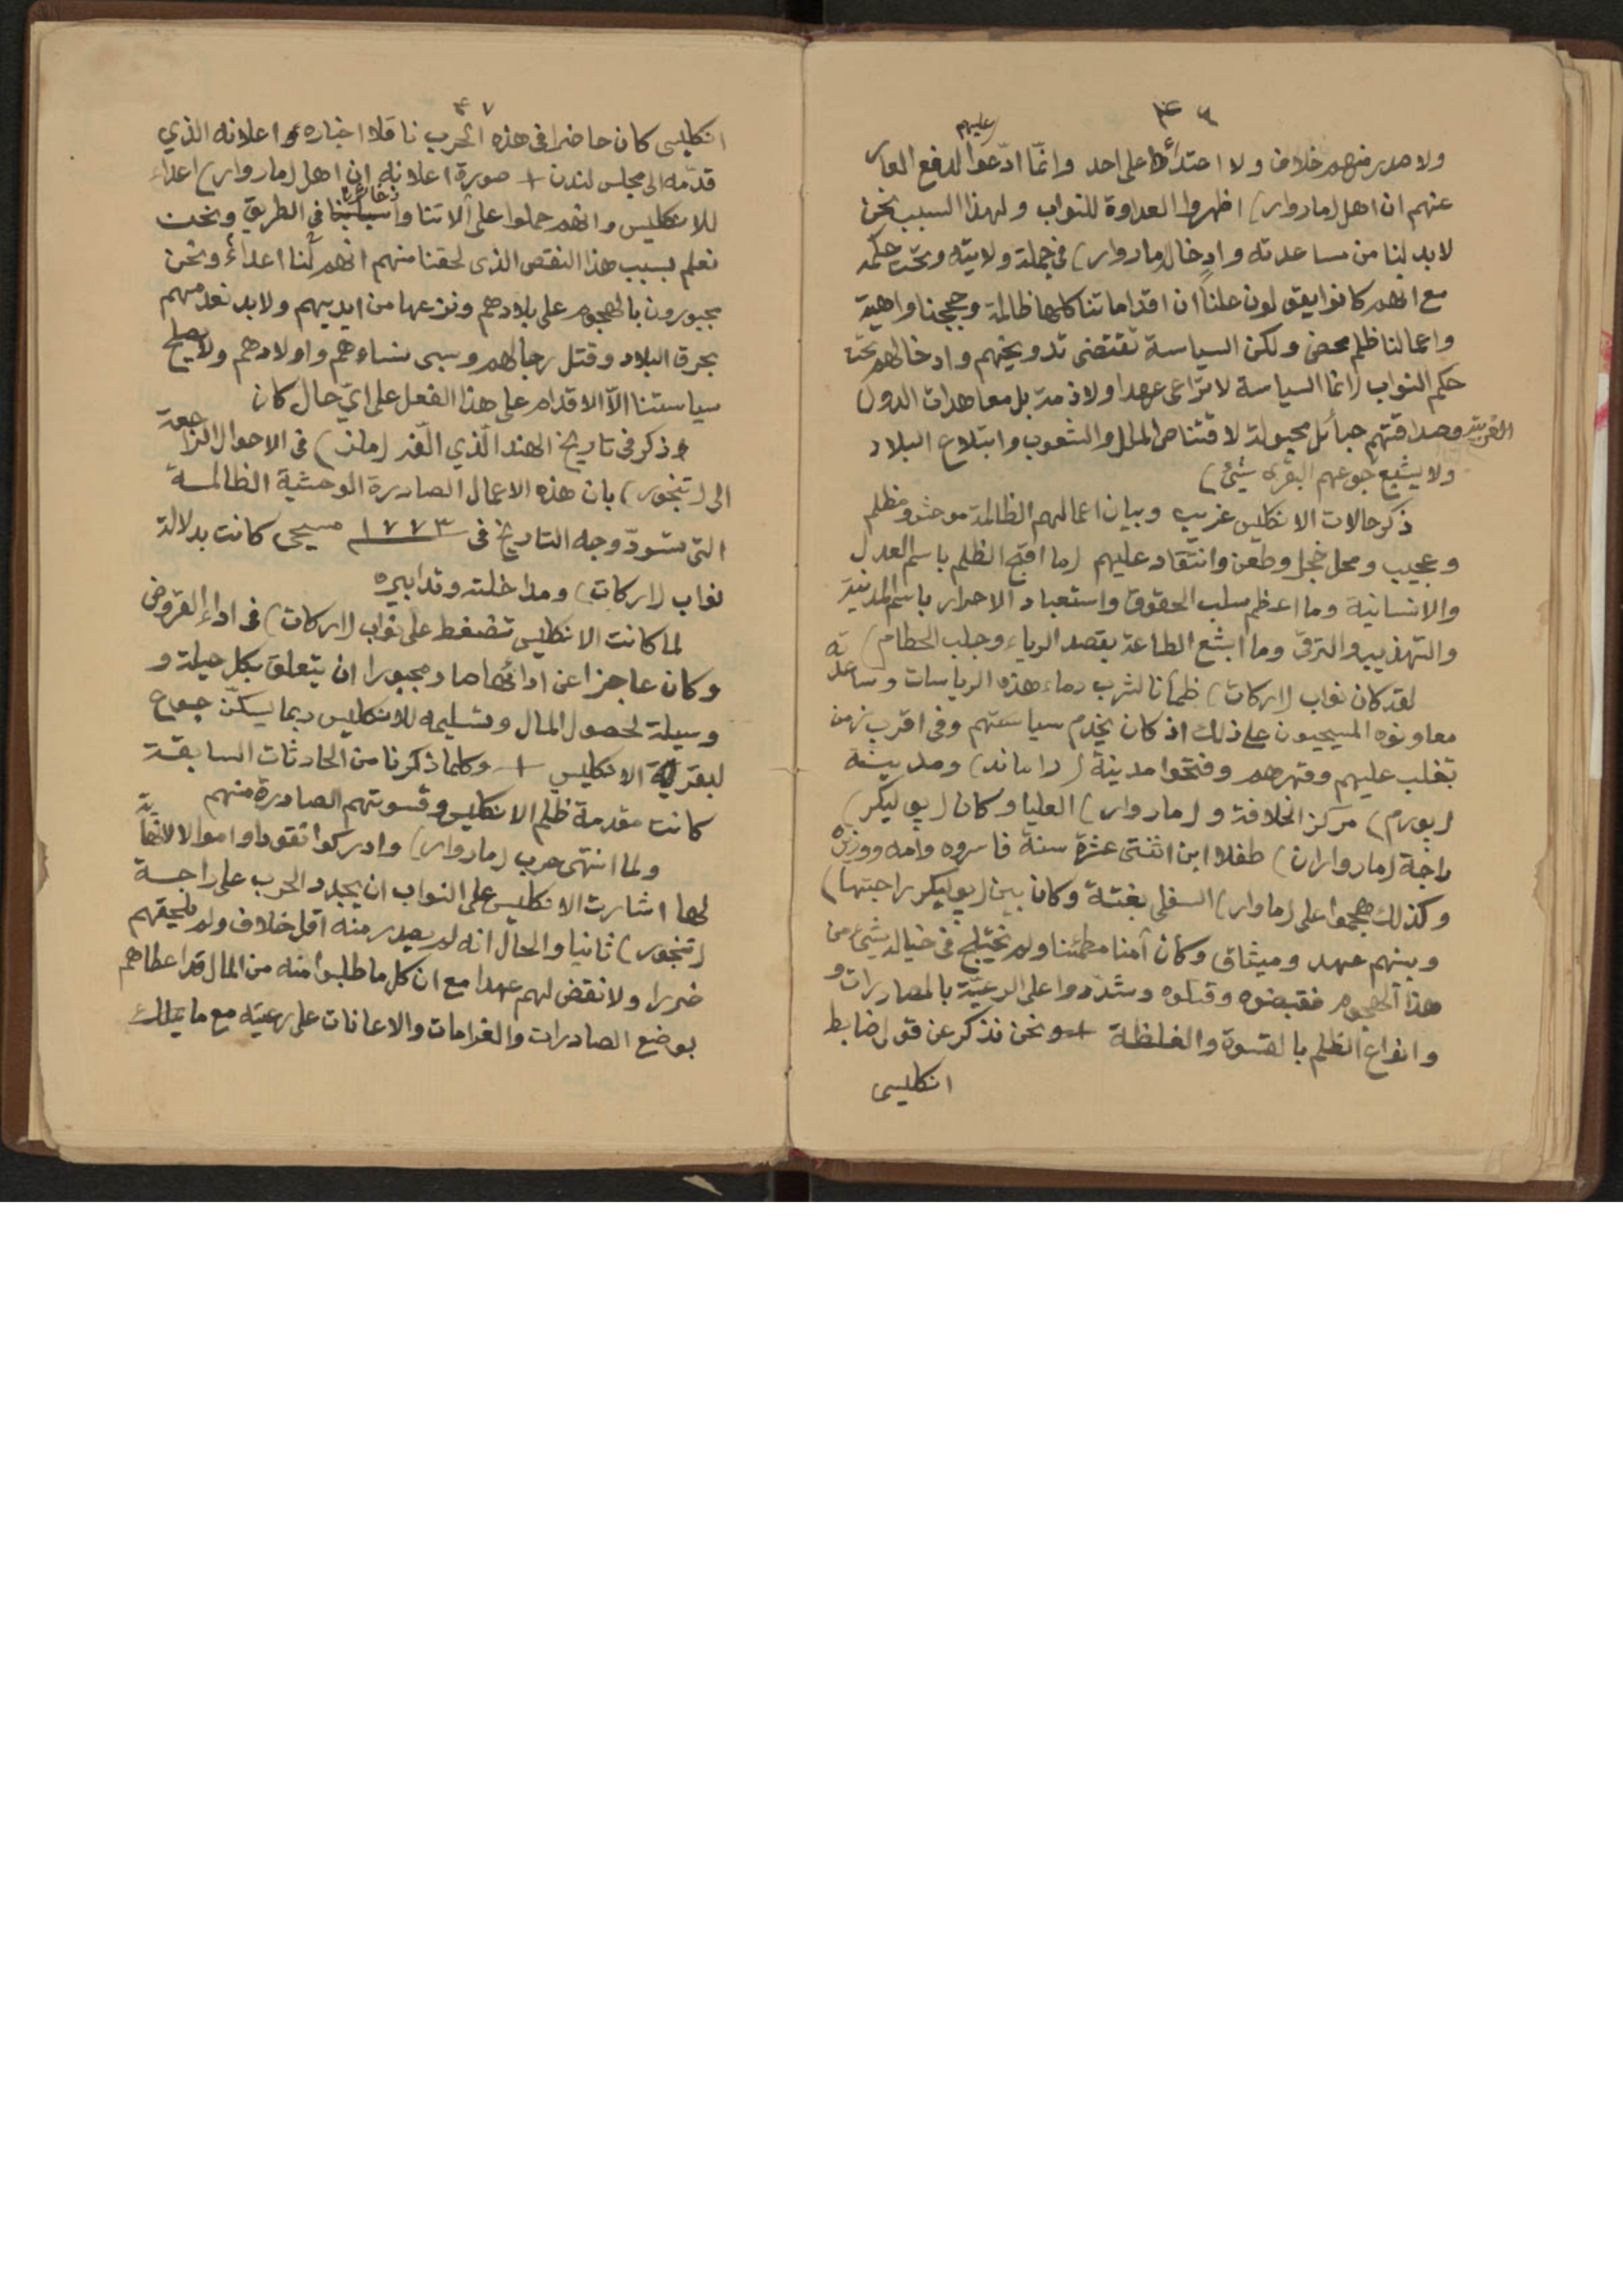 ٤٦
ولا صدر منهم خلاف ولا اعتداء على احد وانما ادّعوا عليهم لدفع العار
عنهم ان اهل (ماروار) اظهروا العداوة للنواب ولهذا السبب نحن
لابد لنا من مساعدته وادخال (ماروار) في جملة ولايته وتحت حكمه
مع انهم كانوا يقولون علناً ان اقداماتنا كلها ظالمة وحججنا واهية
واعمالنا ظلم محض ولكن السياسة تقتضى تدويخهم وادخالهم تحت
حكم النواب (انما السياسة لا تراعى عهدا ولا ذمة بل معاهدات الدول
الغربية وصداقتهم حبائل محبولة لاقتناص الملل والشعوب وابتلاع البلاد
ولا يشبع جوعهم البقرى شئ)
ذكر حالات الانكليس غريب وبيان اعمالهم الظالمة موحش ومظلم
وعجيب ومحل خجل وطعن وانتقاد عليهم (ما اقبح الظلم باسم العدل
والانسانية وما اعظم سلب الحقوق واستعباد الاحرار باسم المدنية
والتهذيب والترقى وما ابشع الطاعة بقصد الرياء وجلب الحطام)
لقد كان نواب (اركات) ظمأنا لشرب دماء هذه الرياسات وساعدته
معاونوه المسيحيون على ذلك اذ كان يخدم سياستهم وفى اقرب زمن
تغلب عليهم وقهرهم وفتحوا مدينة (راماند) ومدينة
(بورم) مركز الخلافة و (ماروار) العليا وكان (بوليكر)
راجة (مارواران) طفلا ابن اثنتى عشرة سنة فاسروه وامه ووزيره
وكذلك هجموا على (ماوار) السفلى بغتة وكان بين (بوليكر راجتها)
وبينهم عهد وميثاق وكان آمنا مطمئنا ولم يختلج فى خياله شئ من
هذا الهجوم فقبضوه وقتلوه وشدّدوا على الرعيّة بالمصادرات و
وانواع الظلم بالقسوة والغلظة + ونحن نذكر عن قول ضابط
انكليسى
٤٧
انكليسى كان حاضرا فى هذه الحرب ناقلا اخباره واعلانه الذي
قدّمه الى مجلس لندن + صورة اعلانه ان اهل (ماروار) اعداء
للانكليس وانهم حملوا على آلاتنا وذخائرنا فى الطريق ونحن
نعلم بسبب هذا النقص الذى لحقنا منهم انهم لنا اعداء ونحن
مجبورون بالهجوم على بلادهم ونزعها من ايديهم ولابد نعدمهم
بحرق البلاد وقتل رجالهم وسبى نساءهم واولادهم ولا يصلح
سياستنا الاّ الاقدام على هذا الفعل على اىّ حال كان
وذكر فى تاريخ الهند الّذي الّفه (ملز) فى الاحوال الراجعة
الى (تنجور) بان هذه الاعمال الصادرة الوحشية الظالمة
التى تسوّد وجه التاريخ فى ١٧٧٣ مسيحى كانت بدلالة
نواب (اركات) ومداخلته وتدابيره
لما كانت الانكليس تضغط على نواب (اركات) فى اداء القروض
وكان عاجزا عن ادائها صار مجبورا ان يتعلق بكل حيلة و
وسيلة لحصول المال وتسليمه للانكليس ربما يسكّن جوع
البقرية الانكليس + وكلما ذكرنا من الحادثات السابقة
كانت مقدمة ظلم الانكليس وقسوتهم الصادرة منهم
ولما انتهى حرب (ماروار) وادركوا نقودا واموالا لا نهاية
لها اشارت الانكليس على النواب ان يجدد الحرب على راجة
(تنجور) ثانيا والحال انه لم يصدر منه اقل خلاف ولم يلحقهم
ضررا ولا نقض لهم عهدا مع ان كل ما طلبوا منه من المال قد اعطاهم
بوضع الصادرات والغرامات والاعانات على رعيته مع ما يملك